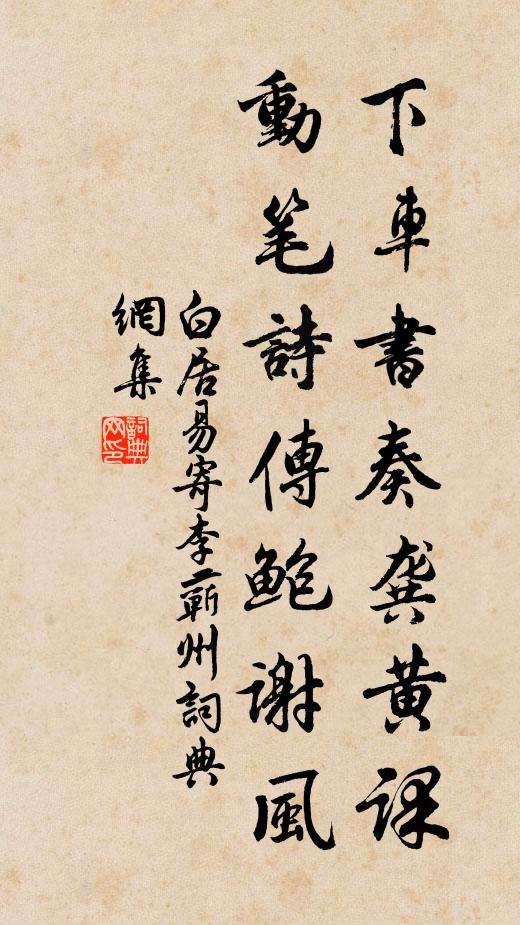 下車書奏龔黄課
動笔詩傳鮑謝風
白居易寄李蘄州詞典
網集
詞典
网印